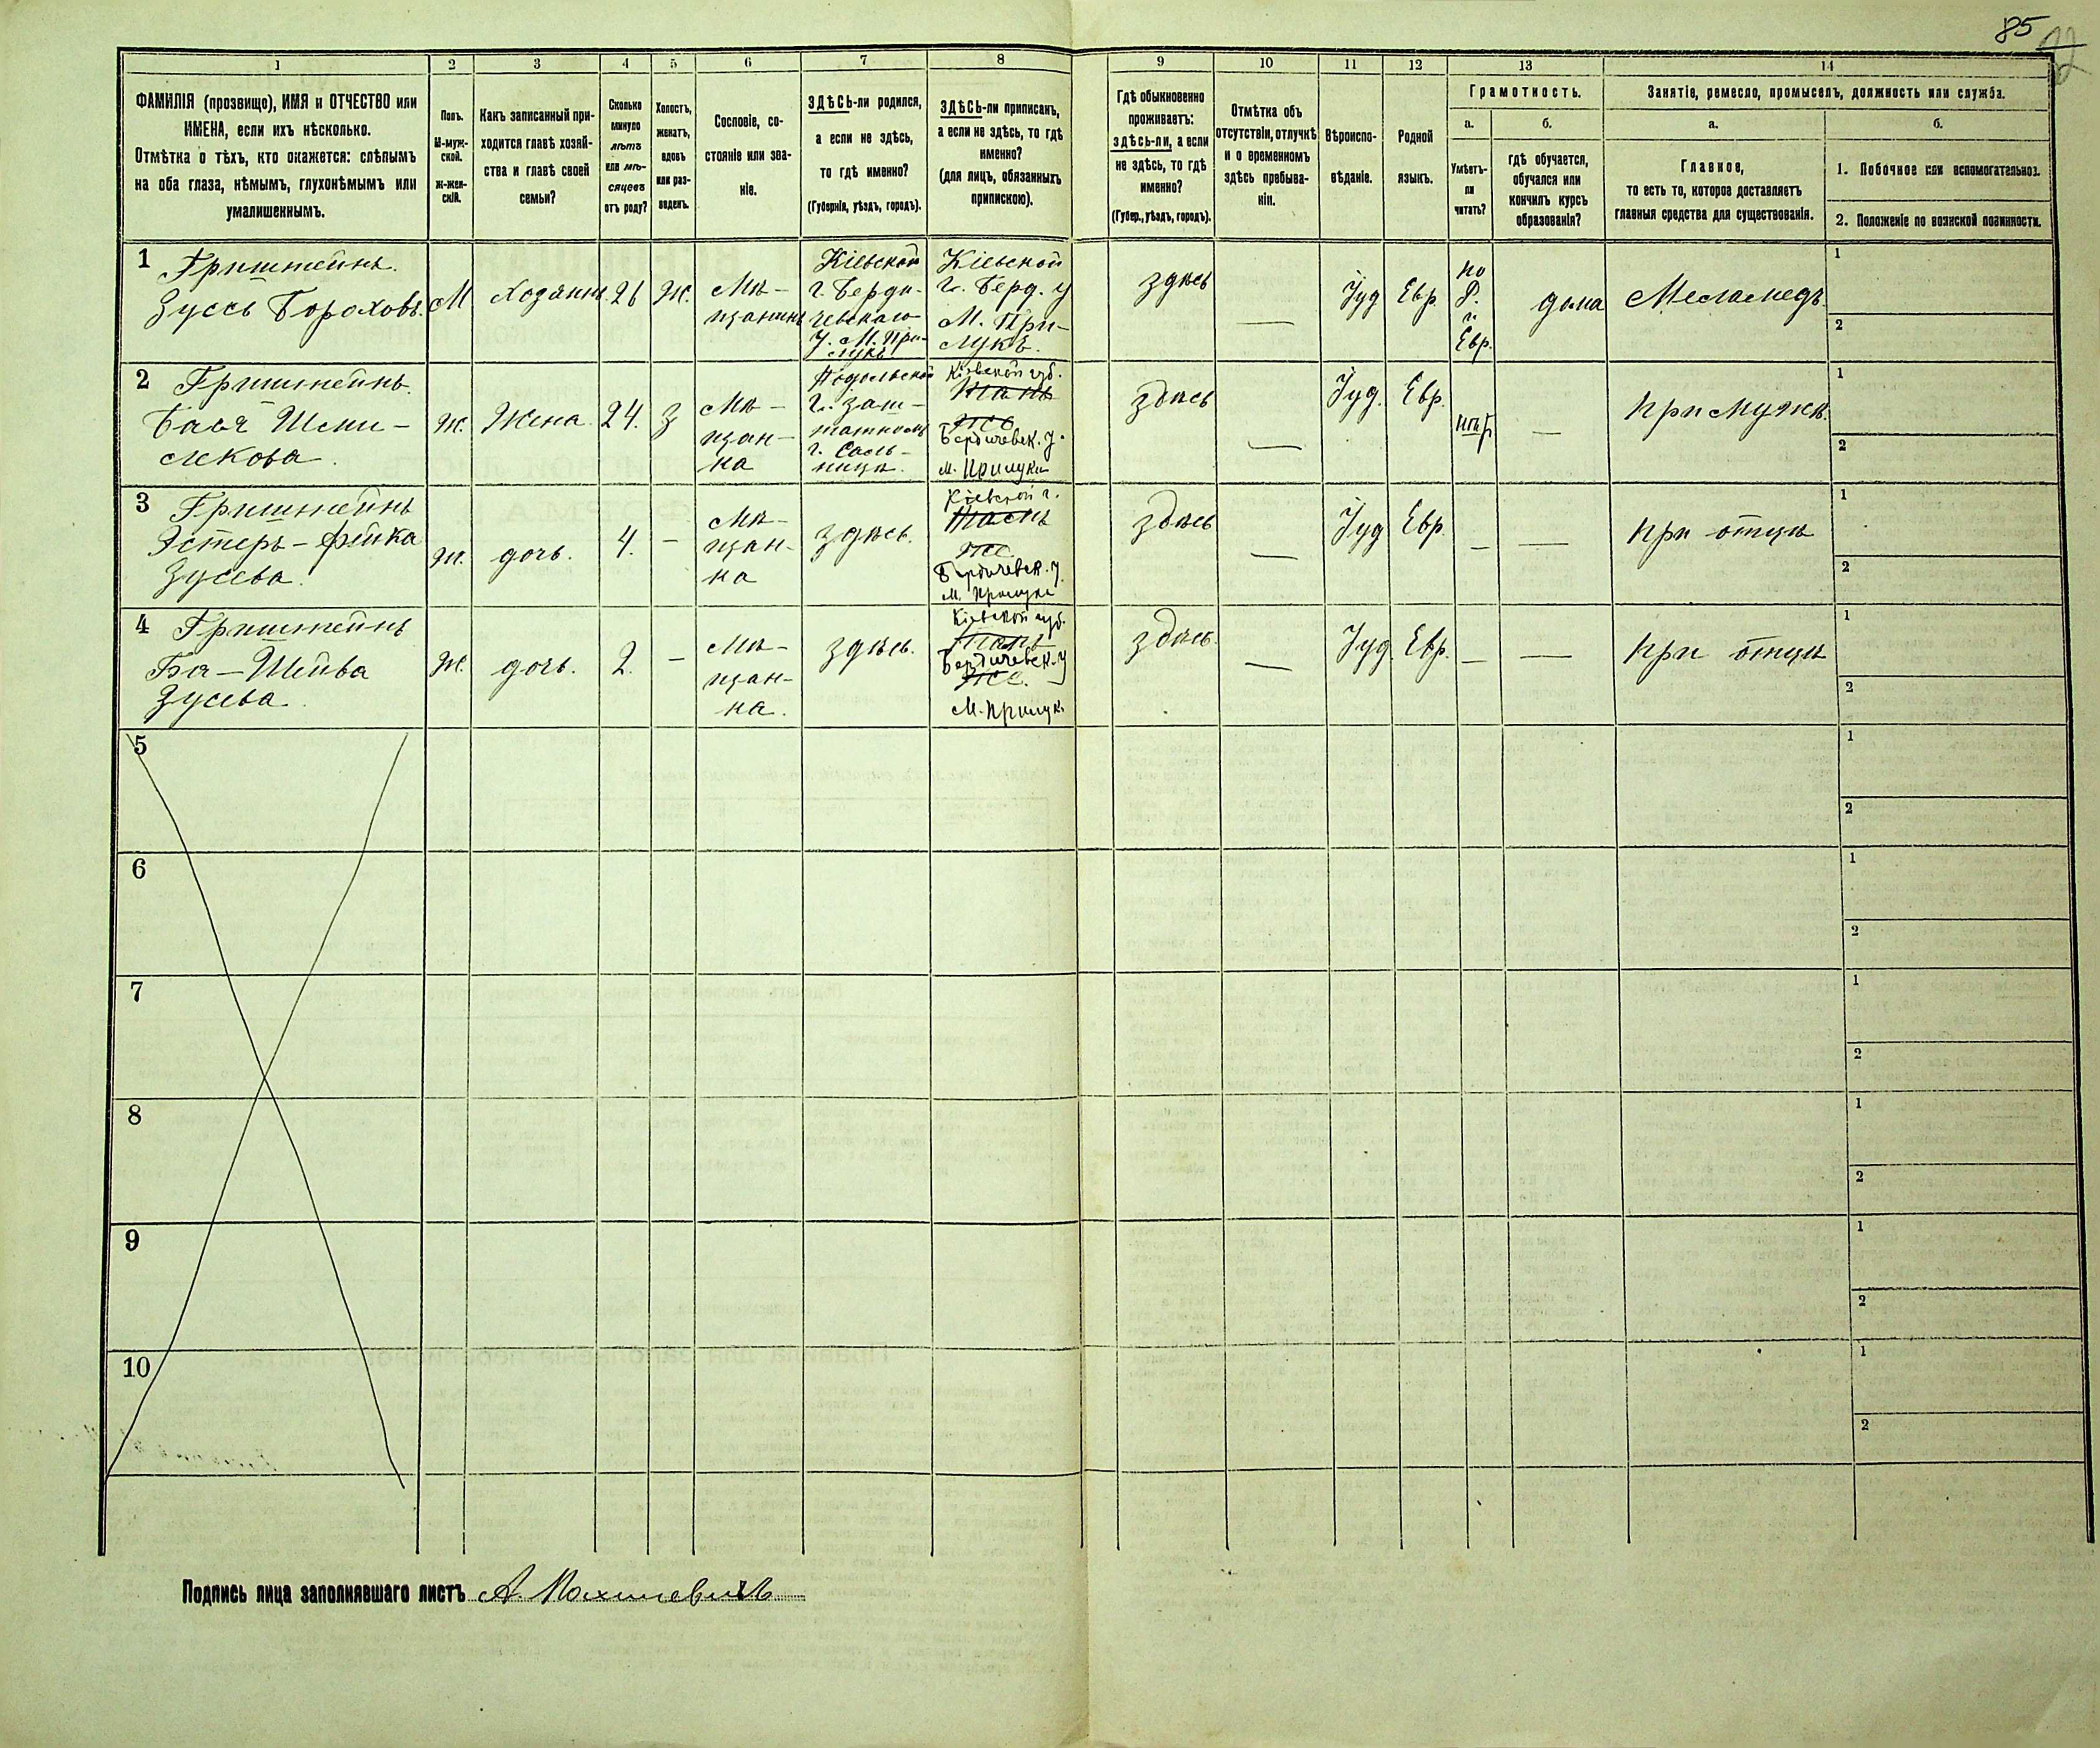 85
1
2
3
4
5
6
7
8
9
10
11
12
13
14
ФАМИЛІЯ (прозвище), ИМЯ и ОТЧЕСТВО или
ИМЕНА, если ихъ нѣсколько.
Отмѣтка о тѣхъ, кто окажется: слѣпымъ
на оба глаза, нѣмымъ, глухонѣмымъ или
умалишеннымъ.
Полъ.
М-муж-
ской.
Ж-жен-
скій.
Какъ записанный при-
ходится главѣ хозяй-
ства и главѣ своей
семьи?
Сколько
минуло
лѣтъ
или мѣ-
сяцевъ
отъ роду?
Холостъ,
женатъ,
вдовъ
или раз-
веденъ.
Сословіе, со-
стояніе или зва-
ніе.
ЗДѢСЬ-ли родился,
а если не здѣсь,
то гдѣ именно?
(Губернія, уѣздъ, городъ).
ЗДѢСЬ-ли приписанъ,
а если не здѣсь, то гдѣ
именно?
(для лицъ, обязанныхъ
припискою).
Гдѣ обыкновенно
проживаетъ:
здѣсь-ли, а если
не здѣсь, то гдѣ
именно?
(Губер., уѣздъ, городъ).
Отмѣтка объ
отсутствіи, отлучкѣ
и о временномъ
здѣсь пребыва-
ніи.
Вѣроиспо-
вѣданіе.
Родной
языкъ.
Грамотность.
а.
Умѣетъ-
ли
читать?
б.
гдѣ обучается,
обучался или
кончилъ курсъ
образованія?
Занятіе, ремесло, промыселъ, должность или служба.
а.
Главное,
то есть то, которое доставляетъ
главныя средства для существованія.
б.
1. Побочное или вспомогательное.
2. Положеніе по воинской повинности.
1
Гриштейнъ
Зусь Бороховъ
М
Хозяинъ
26
Ж.
Мѣ-
щанинъ
Кіевской
г. Берди-
чевскаго
у. М. При-
лукѣ
Кіевской
г. Берд. у
М. При-
лукѣ.
здѣсь
—
Іуд
Евр.
по
Р.
и
Евр.
дома
Меламедъ
1
2
2
Гриштейнъ
Бася
Ж.
Жена
24.
З
Мѣ-
щан-
ка
Подольской
г. заш-
татномъ
г. Саль-
ницѣ.
Кіевской губ.
Тамъ
же
Бердичевск. у.
м. Прилуки
здѣсь
—
Іуд.
Евр.
—
При мужѣ
1
2
3
Гриштейнъ
Эстеръ-Фейга
Зусева
Ж.
дочь.
4.
—
Мѣ-
щан-
ка
здѣсь.
Кіевской г.
Тамъ
же
Бердичевск. у.
м. Прилуки
здѣсь
—
Іуд
Евр.
—
—
При отцѣ
1
2
4
Гриштейнъ
Ба-Шейва
Зусева
Ж.
дочь.
2.
—
Мѣ-
щан-
ка.
здѣсь.
Кіевской губ.
Тамъ
Бердичевск. у
же.
М. Прилук.
здѣсь.
—
Іуд.
Евр.
—
—
При отцѣ
1
2
5
1
2
6
1
2
7
1
2
8
1
2
9
1
2
10
1
2
Подпись лица заполнявшаго листъ